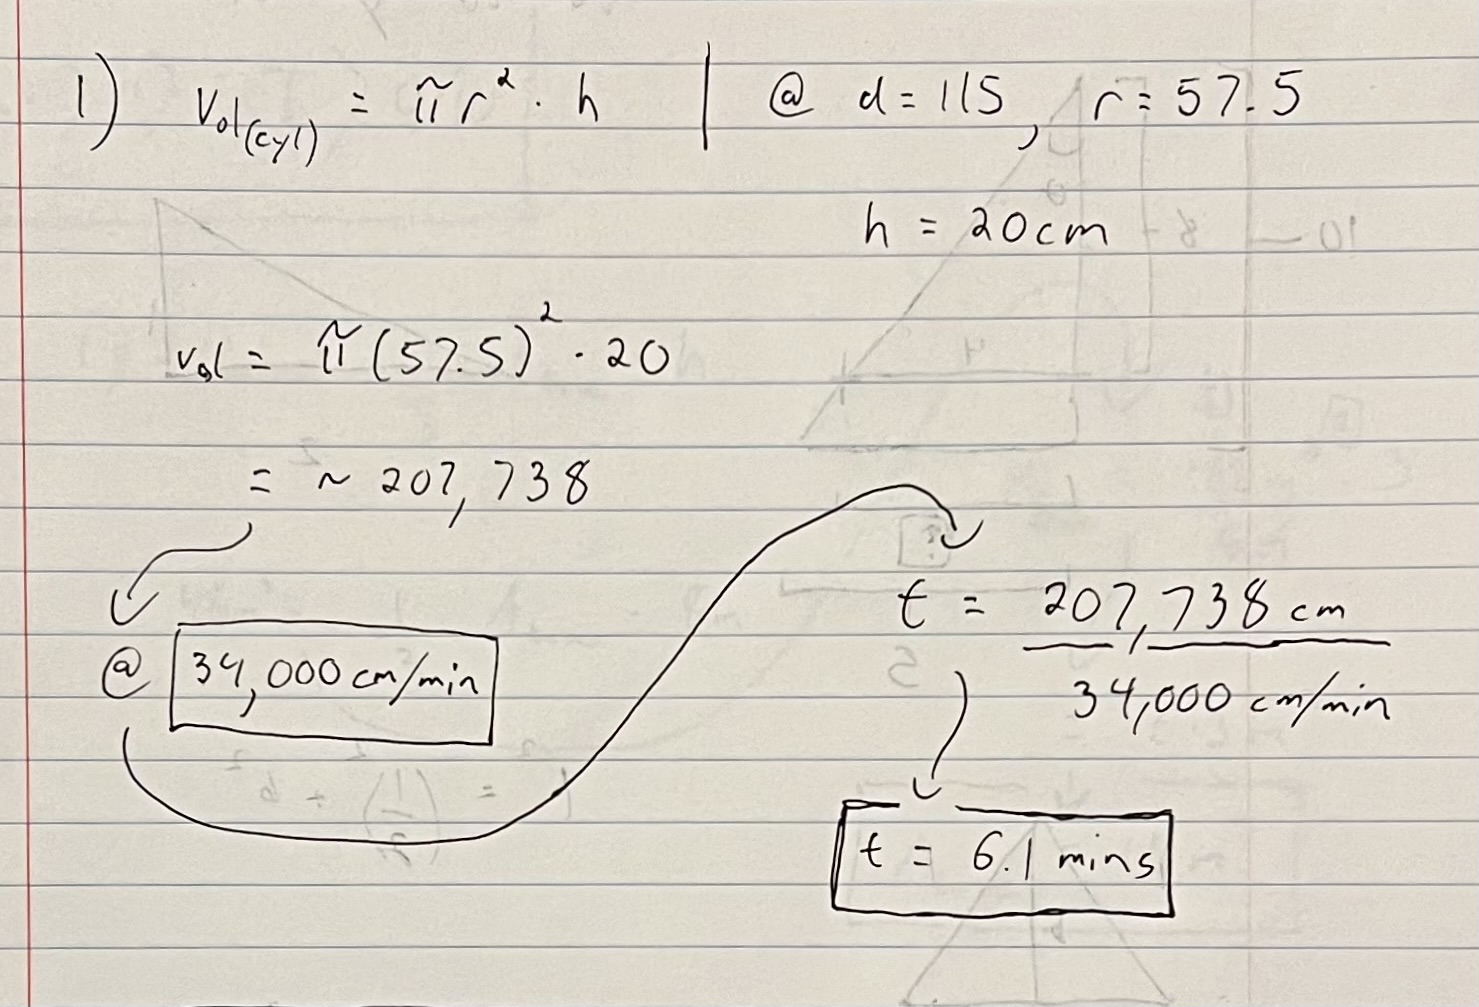 1) Vol(cyl) = πr² · h | @ d = 115, r = 57.5
h = 20cm
vol = π(57.5)² · 20
= ~ 207,738
@ 34,000 cm/min
t = 207,738 cm
34,000 cm/min
t = 6.1 mins